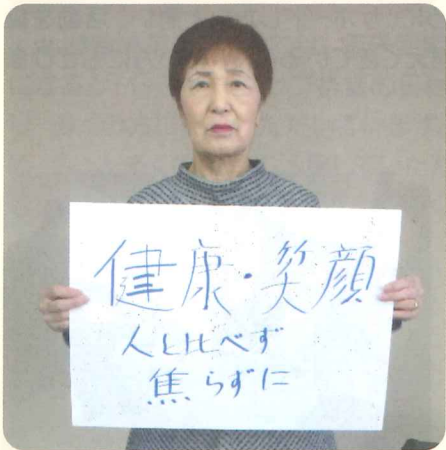 健康・笑顔
人と比べず
焦らずに